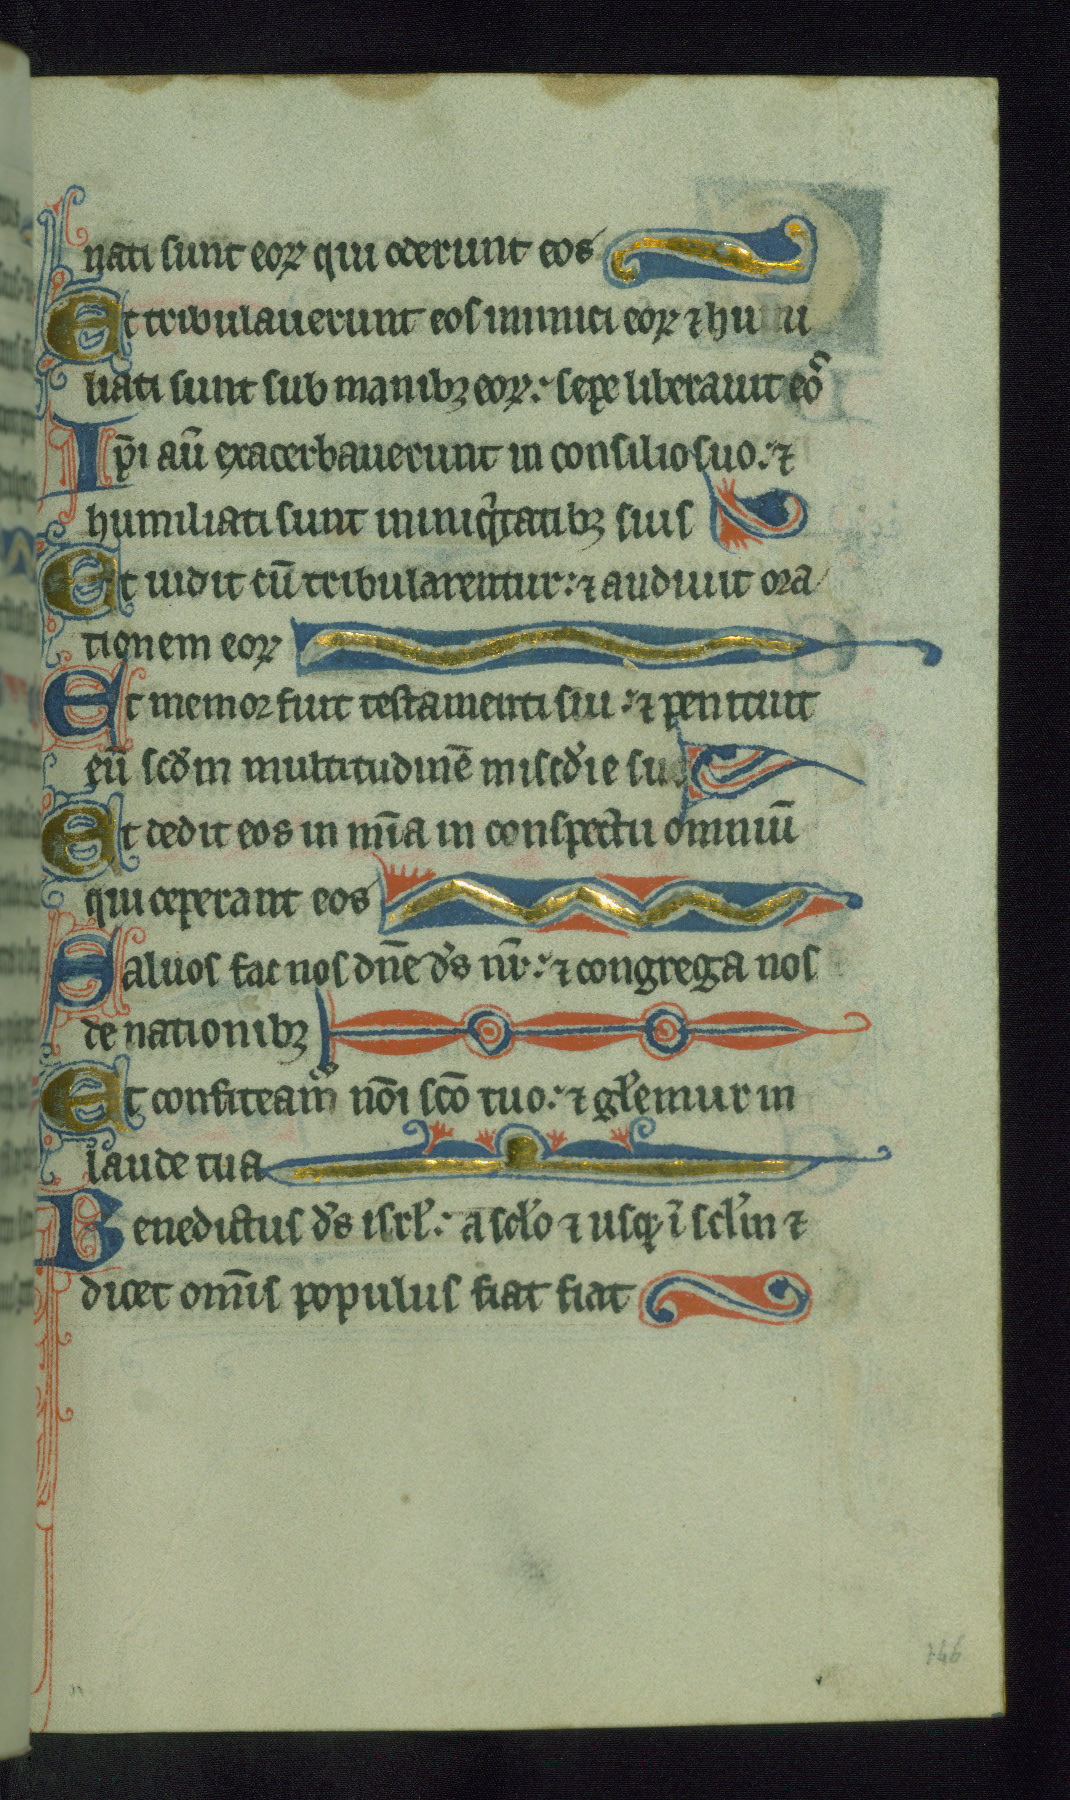 nati sunt eoꝝ qui oderunt eos
Et tribulauerunt eos inimici eoꝝ ⁊ humi
liati sunt sub manibꝫ eoꝝ: sepe liberauit eos
Ip̄i aū exacerbauerunt in consilio suo: ⁊
humiliati sunt in iniqⁱtatibꝫ suis
Et uidit cū tribularentur: ⁊ audiuit ora
tionem eoꝝ
Et memor fuit testamenti sui: ⁊ penituit
eū scd̓m multitudinē miscd̓ie sue
Et dedit eos in mīa in conspectu omniū
qui ceperant eos
Saluos fac nos dn̄e d̓s nr̄: ⁊ congrega nos
de nationibꝫ
Et confiteam̄ nōi scō tuo: ⁊ gl̓emur in
laude tua
Benedictus d̓s isrl̓: a scl̓o ⁊ usqꝫ ī scl̓m ⁊
dicet om̄is populus fiat fiat
146